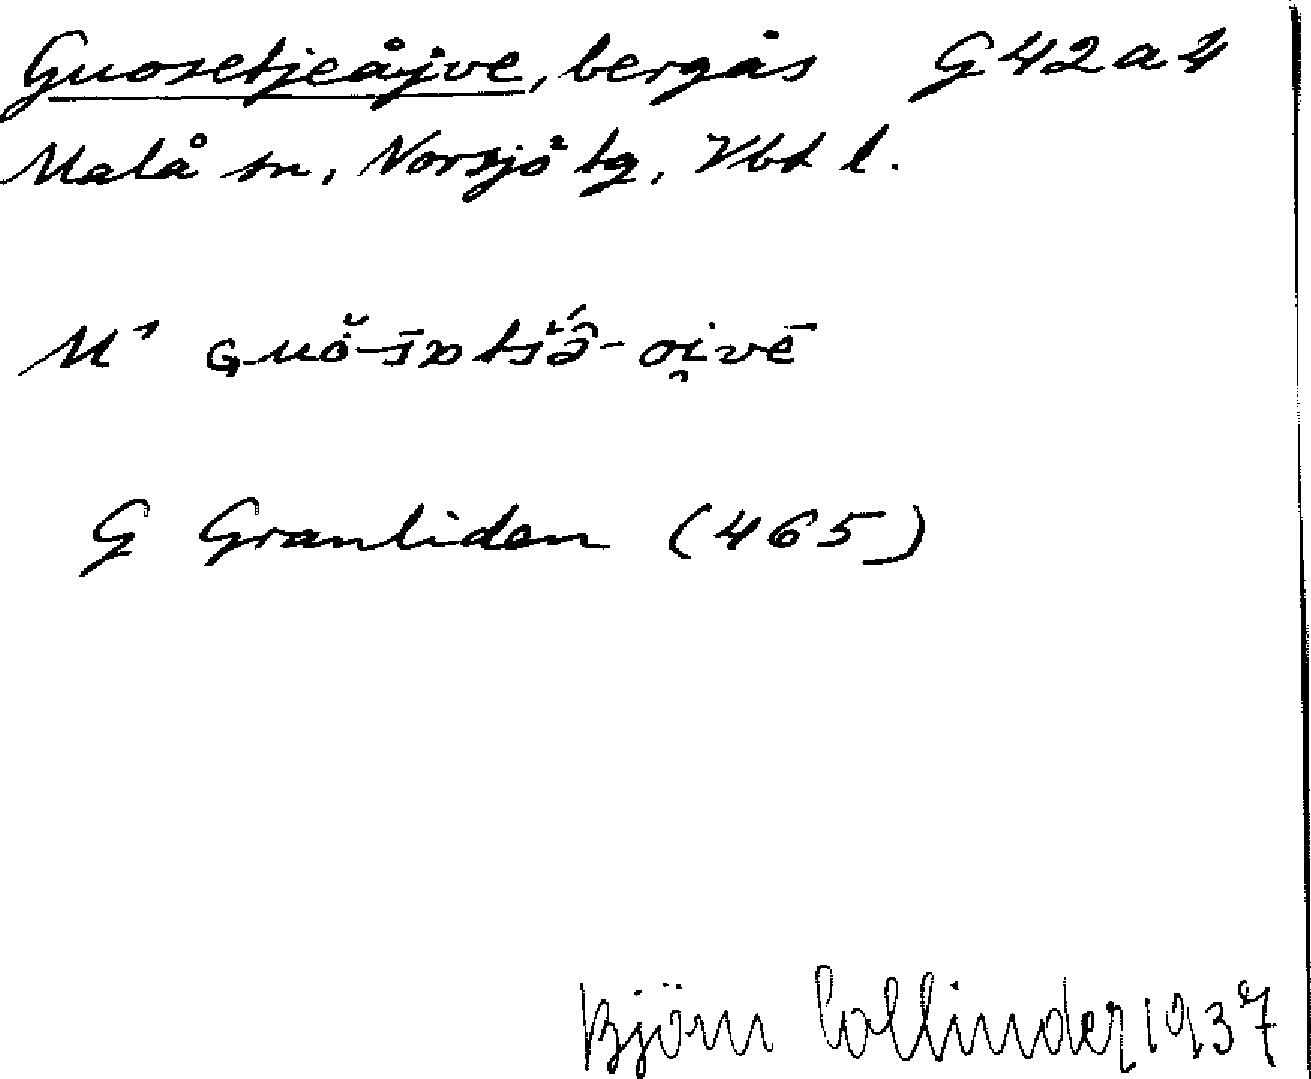 Guosetjeåjve, bergås G42a4
Malå sn, Norsjö tg, Vbt l.
M¹
G Granliden (465)
Björn Collinder 1937